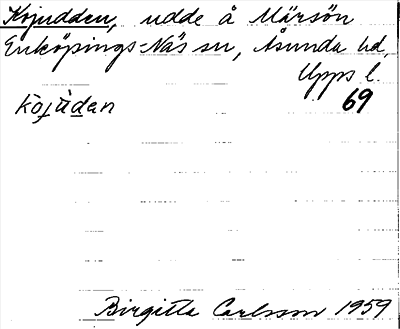 Kojudden, udde å Märsön
Enköpings-Näs sn, Åsunda hd,
Upps l.
kòjùdan 69
Birgitta Carlsson 1959